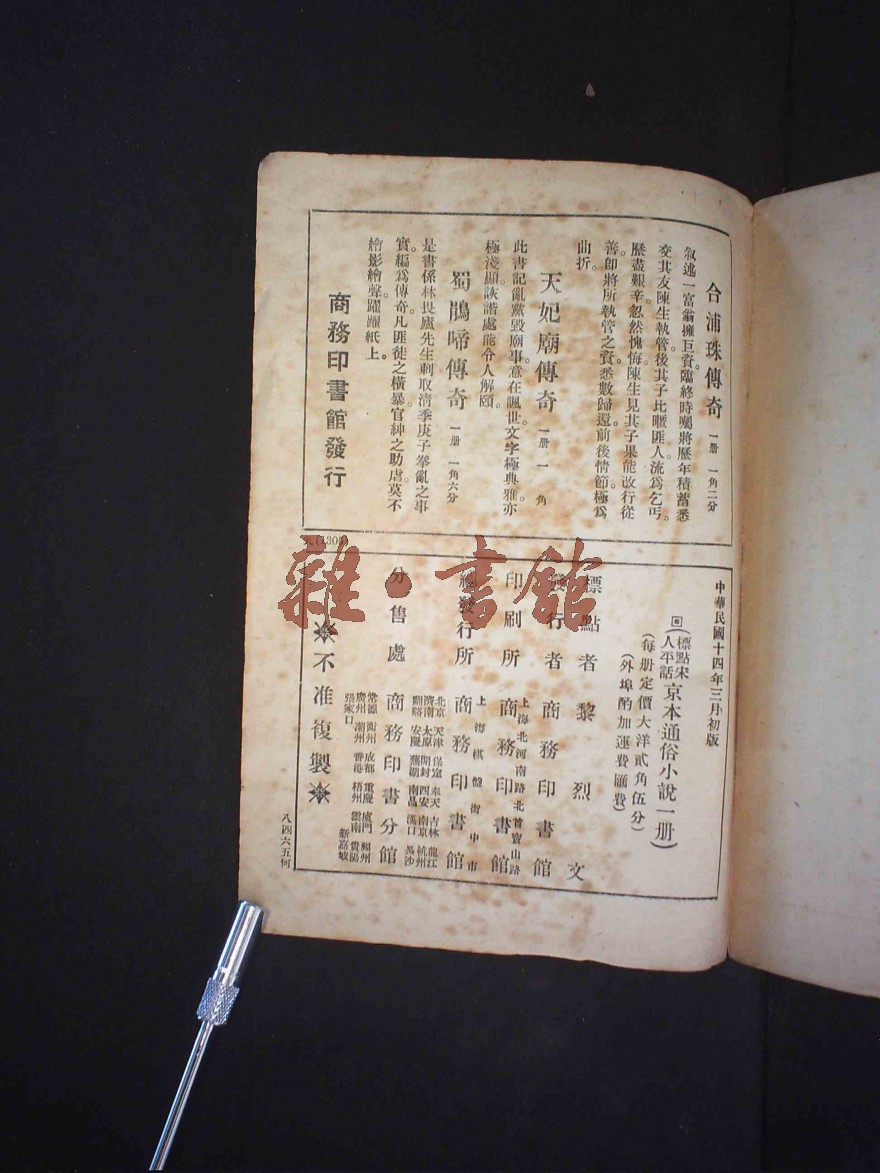 合浦珠傳奇 一册 一角二分
叙述一富翁擁巨資。臨終時囑將歷年積蓄悉
交其友陳生執管後其子比暱匪人流爲乞丐。
歷盡艱辛忽然愧悔陳生見其子果能改行從
善即將所執管之資悉數歸還前後情節極爲
曲折。
天妃廟傳奇 一册 一角
此書記亂黨毀廟事意在諷世文字極典雅亦
極淺顯詼諧處能令人解頤。
蜀鵑啼傳奇 一册 一角六分
是書係林畏廬先生刺取淸季庚子拳亂之事
實編爲傳奇凡匪徒之橫暴官紳之助虐莫不
繪影繪聲躍躍紙上。
商務印書館發行
元(1305)
中華民國十四年三月初版
(標點宋人平話)京本通俗小說一册)
(每册定價大洋貳角伍分)
(外埠酌加運費匯費)
標點者 黎烈文
發行者 商務印書館
上海北河南路北首寶山路
印刷所 商務印書館
上海棋盤街中市
總發行所 商務印書館
分售處 商務印書分館
北京 天津 保定 奉天 吉林 龍江
濟南 太原 開封 西安 南京 杭州
蘭谿 安慶 蕪湖 南昌 漢口 長沙
常德 衡州 成都 重慶 廈門 福州
廣州 潮州 香港 梧州 雲南 貴陽
張家口 新嘉坡
不准複製
八四六五何
雜·書館